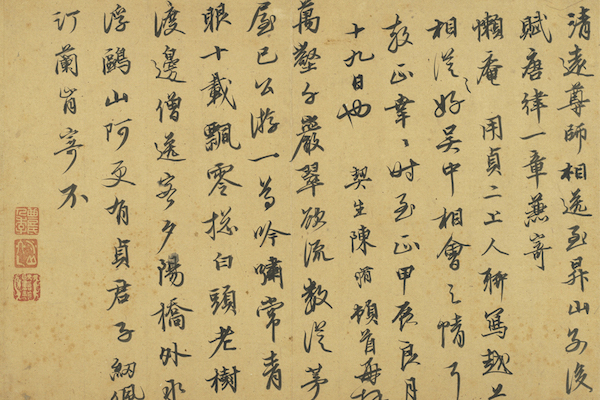 清遠尊師相送至昇山後
賦唐律一章兼寄
懶庵 用貞二上人聊寫越上
相從之好吳中相會之情
教正幸〻时至正甲辰良月
十九日也 契生陳頓首再拜
萬壑千巖翠欲流數從茅
屋已公游一尊吟嘯常青
眼十載飄零總白頭老樹
渡邊僧送客夕陽橋外水
浮鷗山阿更有貞君子紉佩
汀蘭肯寄不